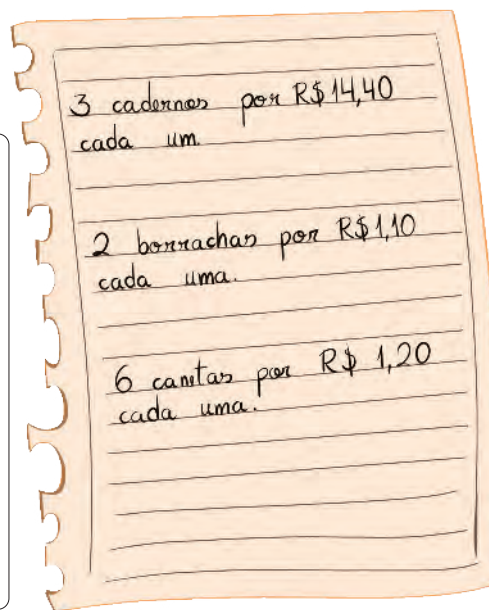 3 cadernos por R$ 14,40
cada um.
2 borrachas por R$ 1,10
cada uma.
6 canetas por R$ 1,20
cada uma.